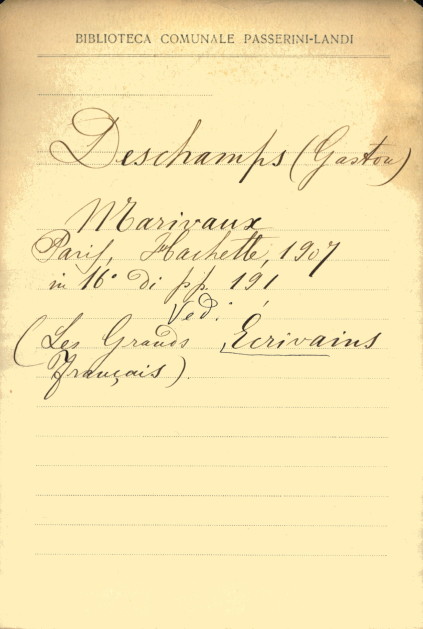 BIBLIOTECA COMUNALE PASSERINI-LANDI
Deschamps (Gaston)
Marivaux
Paris, Hachette, 1907
in 16° di pp. 191
Ved:
(Les Grands Écrivains
Français).